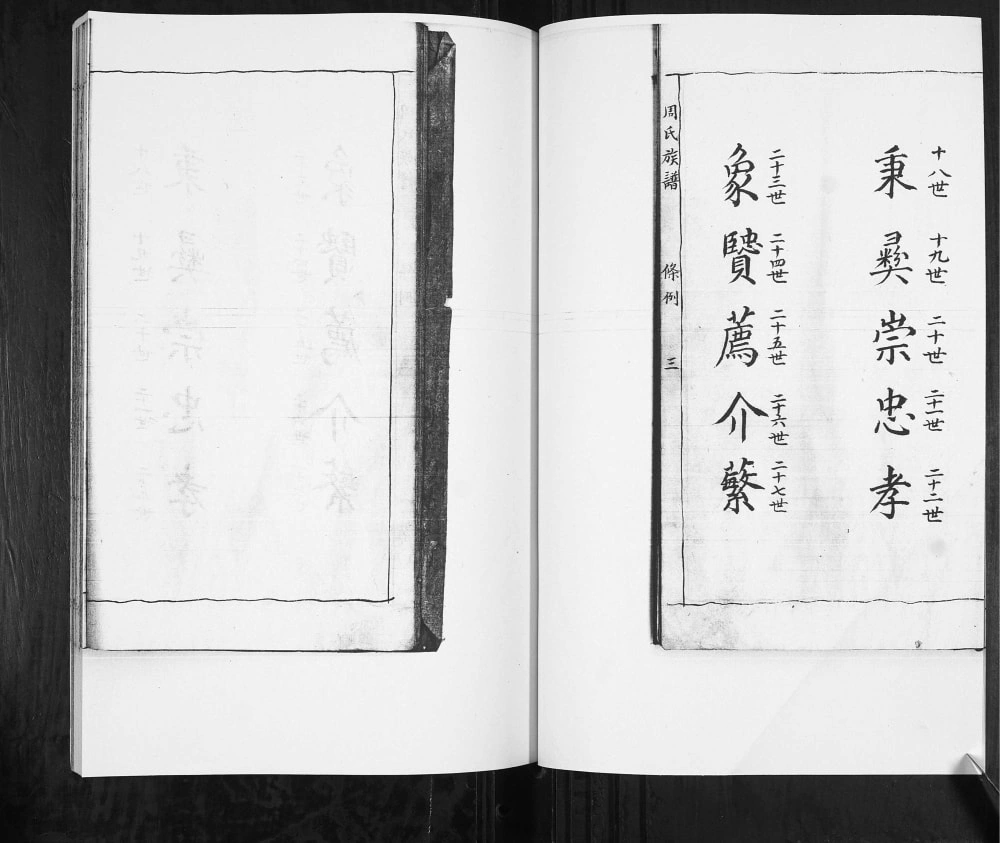 十八世 秉
十九世 彜
二十世 崇
二十一世 忠
二十二世 孝
二十三世 象
二十四世 賢
二十五世 薦
二十六世 介
二十七世 蘩
周氏族譜 條例 三